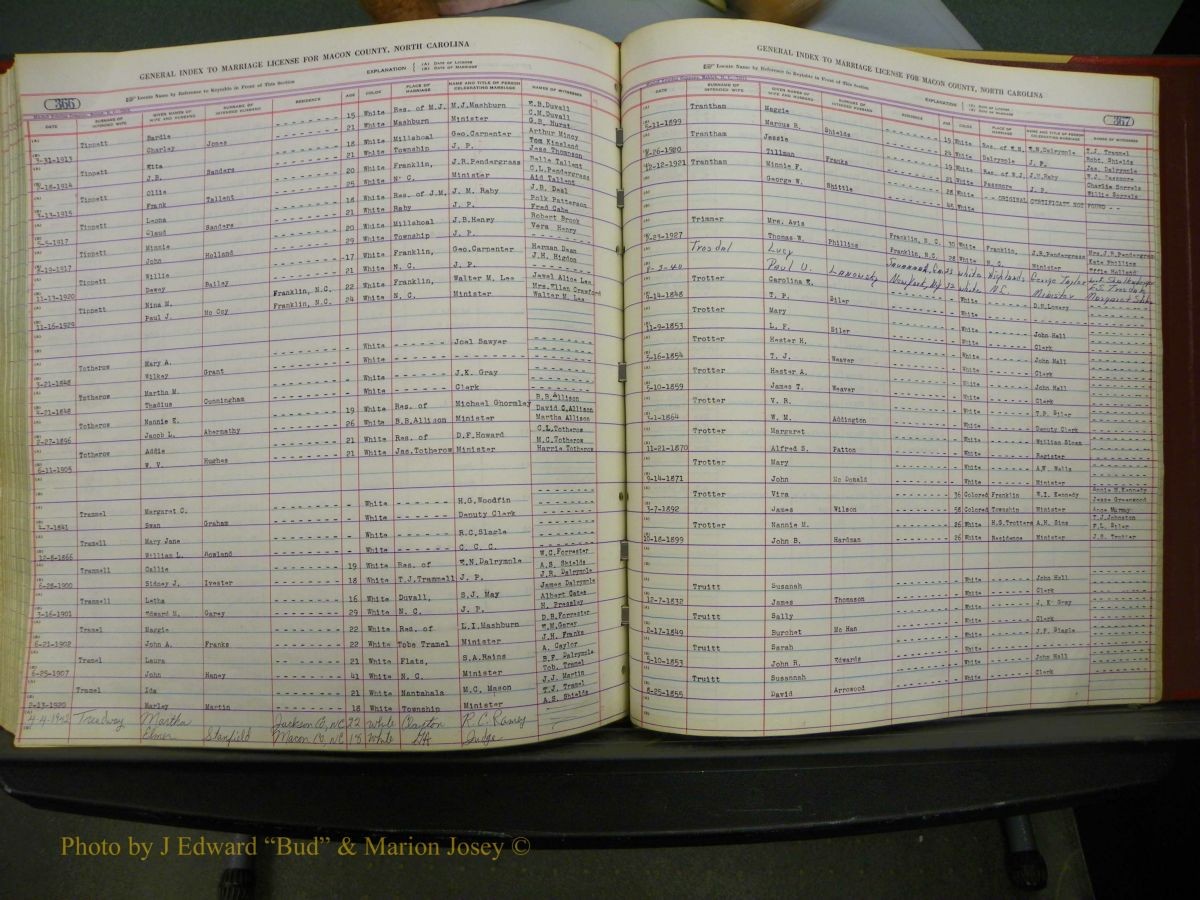 GENERAL INDEX TO MARRIAGE LICENSE FOR MACON COUNTY, NORTH CAROLINA
Locate Name by Reference to Keytable in Front of This Section
EXPLANATION (A) DATE OF LICENSE (B) DATE OF MARRIAGE
366
DATE SURNAME OF INTENDED WIFE GIVEN NAMES OF WIFE AND HUSBAND SURNAME OF INTENDED HUSBAND RESIDENCE AGE COLOR PLACE OF MARRIAGE NAME AND TITLE OF PERSON CELEBRATING MARRIAGE NAMES OF WITNESSES
Tippett Bardie 15 White Res. of M.J. M.J.Mashburn E.B.Duvall
3-31-1913 Charley Jones 21 White Mashburn C.M.Duvall
G.B. Hurst
Tippett Etta 18 White Millshoal Geo.Carpenter Arthur Mincy
-18-1914 J.B. Sanders 21 White Township J. P. Tom Kinsland
Jess Thomason
Tippett Ollie 20 White Franklin, J.R.Pendergrass Belle Tallent
-13-1915 Frank Tallent 25 White N. C. Minister C.L.Pendergrass
Aid Tallent
Tippett Leona 18 White Res. of J.M. J. M. Raby J.B. Deal
-5-1917 Claud Sanders 21 White Raby J. P. Polk Patterson
Fred Cabe
Tippett Minnie 20 White Millshoal J.B.Henry Robert Brook
-19-1917 John Holland 29 White Township J. P. Vera Henry
Tippett Willie 17 White Franklin, Geo.Carpenter Herman Dean
11-13-1920 Dewey Bailey 21 White N. C. J. P. J.H. Higdon
Tippett Nina M. Franklin, N.C. 22 White Franklin, Walter M. Lee Jewel Alice Lee
11-16-1929 Paul J. Mc Coy Franklin, N.C. 24 White N. C. Minister Mrs.Ellen Crawford
Walter M. Lee
Totherow Mary A. White Joel Sawyer
3-21-1848 Wilkey Grant White
Totherow Martha M. White J.K. Gray
4-21-1848 Thadius Cunningham White Clerk
Totherow Nannie E. 19 White Res. of Michael Ghormley B.B.Allison
2-27-1896 Jacob L. Abernathy 26 White B.B.Allison Minister David C.Allison
Martha Allison
Totherow Addie 21 White Res. of D.F.Howard C.L.Totherow
6-11-1905 W. V. Hughes 21 White Jas.Totherow Minister M.C.Totherow
Harris Totherow
Trammel Margaret C. White H.G.Woodfin
4-7-1841 Swan Graham White Deputy Clerk
Tramell Mary Jane White R.C.Slagle
12-8-1866 William L. Rowland White C. C. C.
Trammell Callie 19 White Res. of E.N.Dalrymple W.C.Forrester
6-28-1900 Sidney J. Ivester 18 White T.J.Trammell J. P. A.S. Shields
J.R. Dalrymple
Trammell Letha 16 White Duvall, S.J. May James Dalrymple
3-16-1901 Edward M. Garey 29 White N. C. J. P. Albert Cates
H. Pressley
Tramel Maggie 22 White Res. of L.I.Mashburn D.B.Forrester
6-21-1902 John A. Franks 22 White Tobe Tramel Minister E.M.Garey
J.H. Franks
Tramel Laura 21 White Flats, S.A.Rains A. Caylor
6-25-1907 John Haney 41 White N. C. Minister B.F. Dalrymple
Tob. Tramel
Tramel Ida 21 White Nantahala M.C. Mason J.J. Martin
2-13-1920 Harley Martin 18 White Township Minister T.J. Tramel
A.S. Shields
4-4-1932 Treadway Martha Jackson Co, NC 22 White Clayton R.C. Ramey
Elmer Stanfield Macon Co, NC 18 White GA Judge
GENERAL INDEX TO MARRIAGE LICENSE FOR MACON COUNTY, NORTH CAROLINA
Locate Name by Reference to Keytable in Front of This Section
EXPLANATION (A) DATE OF LICENSE (B) DATE OF MARRIAGE
367
DATE SURNAME OF INTENDED WIFE GIVEN NAMES OF WIFE AND HUSBAND SURNAME OF INTENDED HUSBAND RESIDENCE AGE COLOR PLACE OF MARRIAGE NAME AND TITLE OF PERSON CELEBRATING MARRIAGE NAMES OF WITNESSES
Trantham Maggie 19 White Res. of E.N. E.N.Dalrymple T.J. Trammel
-11-1899 Marcus R. Shields 24 White Dalrymple J. P. Robt. Shields
Jas. Dalrymple
Trantham Jessie 19 White Res. of W.J. J.M.Raby W.J. Passmore
-26-1920 Tillman Franks 21 White Passmore J. P. Charlie Sorrels
Willie Sorrels
12-12-1921 Trantham Minnie F. 28 White ORIGINAL CERTIFICATE NOT FOUND
George W. Shittle White
Trimmer Mrs. Avis Franklin, N. C. White Franklin, J.R.Pendergrass Mrs.J.R.Pendergrass
-23-1927 Thomas W. Phillips Franklin, N.C. 28 White N. C. Minister Kate Phillips
Effie Holland
Tresdal Lucy Savannah, Ga. White Highlands George Taylor
8-3-40 Paul U. White N.C. Minister
Trotter Carolina E. White D.R.Lowery
-14-1848 T. P. Siler White
Trotter Mary White John Hall
11-9-1853 L. F. Siler White Clerk
Trotter Hester H. White John Hall
5-16-1854 T. J. Weaver White Clerk
Trotter Hester A. White John Hall
5-10-1859 James T. Weaver White Clerk
Trotter V. R. White T.P. Siler
3-1-1864 W. M. Addington White Deputy Clerk
Trotter Margaret White William Sloan
11-21-1870 Alfred S. Patton White Register
Trotter Mary White A.W. Wells
9-14-1871 John Mc Donald White Minister
Trotter Vira 36 Colored Franklin W.I. Kennedy Annie M.Kennedy
3-7-1892 James Wilson 58 Colored Township Minister Jesse Greenwood
Anne Murray
Trotter Nannie M. 26 White H.G.Trotters A.H. Sims T.J.Johnston
10-18-1899 John B. Hardman 26 White Residence Minister F.L. Siler
J.S. Trotter
Truitt Susanah White John Hall
12-7-1832 James Thomason White Clerk
Truitt Sally White J. K. Gray
2-17-1849 Burchet Mc Han White Clerk
Truitt Sarah White J.F. Slagle
5-10-1853 John R. Edwards White
Truitt Susannah White John Hall
8-25-1855 David Arrowood White Clerk
Photo by J Edward “Bud” & Marion Josey ©